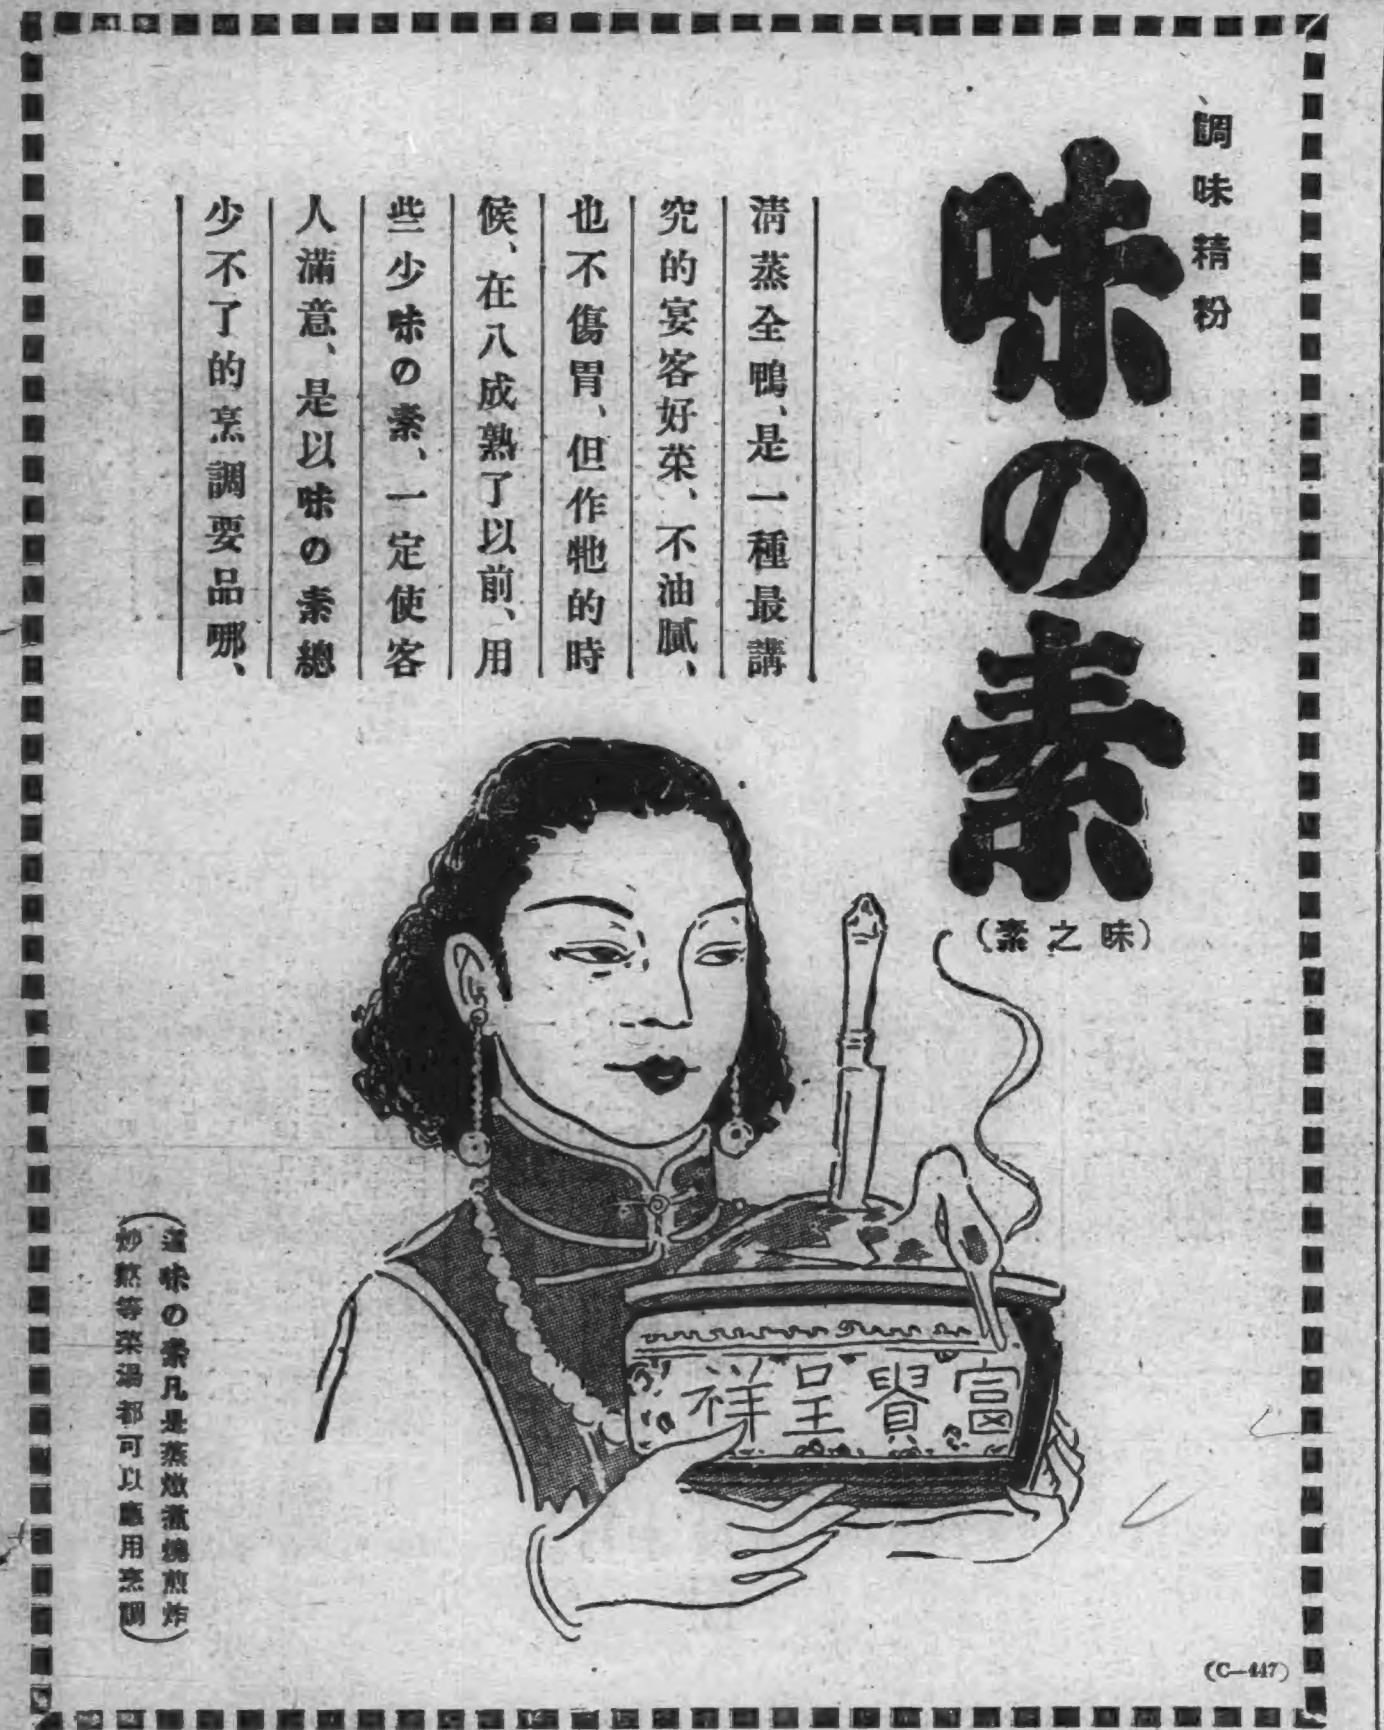 調味精粉
味の素
(味之素)
清蒸全鴨、是一種最講
究的宴客好菜、不油膩、
也不傷胃、但作牠的時
候、在八成熟了以前、用
些少味の素、一定使客
人滿意、是以味の素總
少不了的烹調要品哪、
富貴呈祥
(這味の素凡是蒸燉煮燒煎炸
炒熬等菜湯都可以應用烹調)
(C—447)